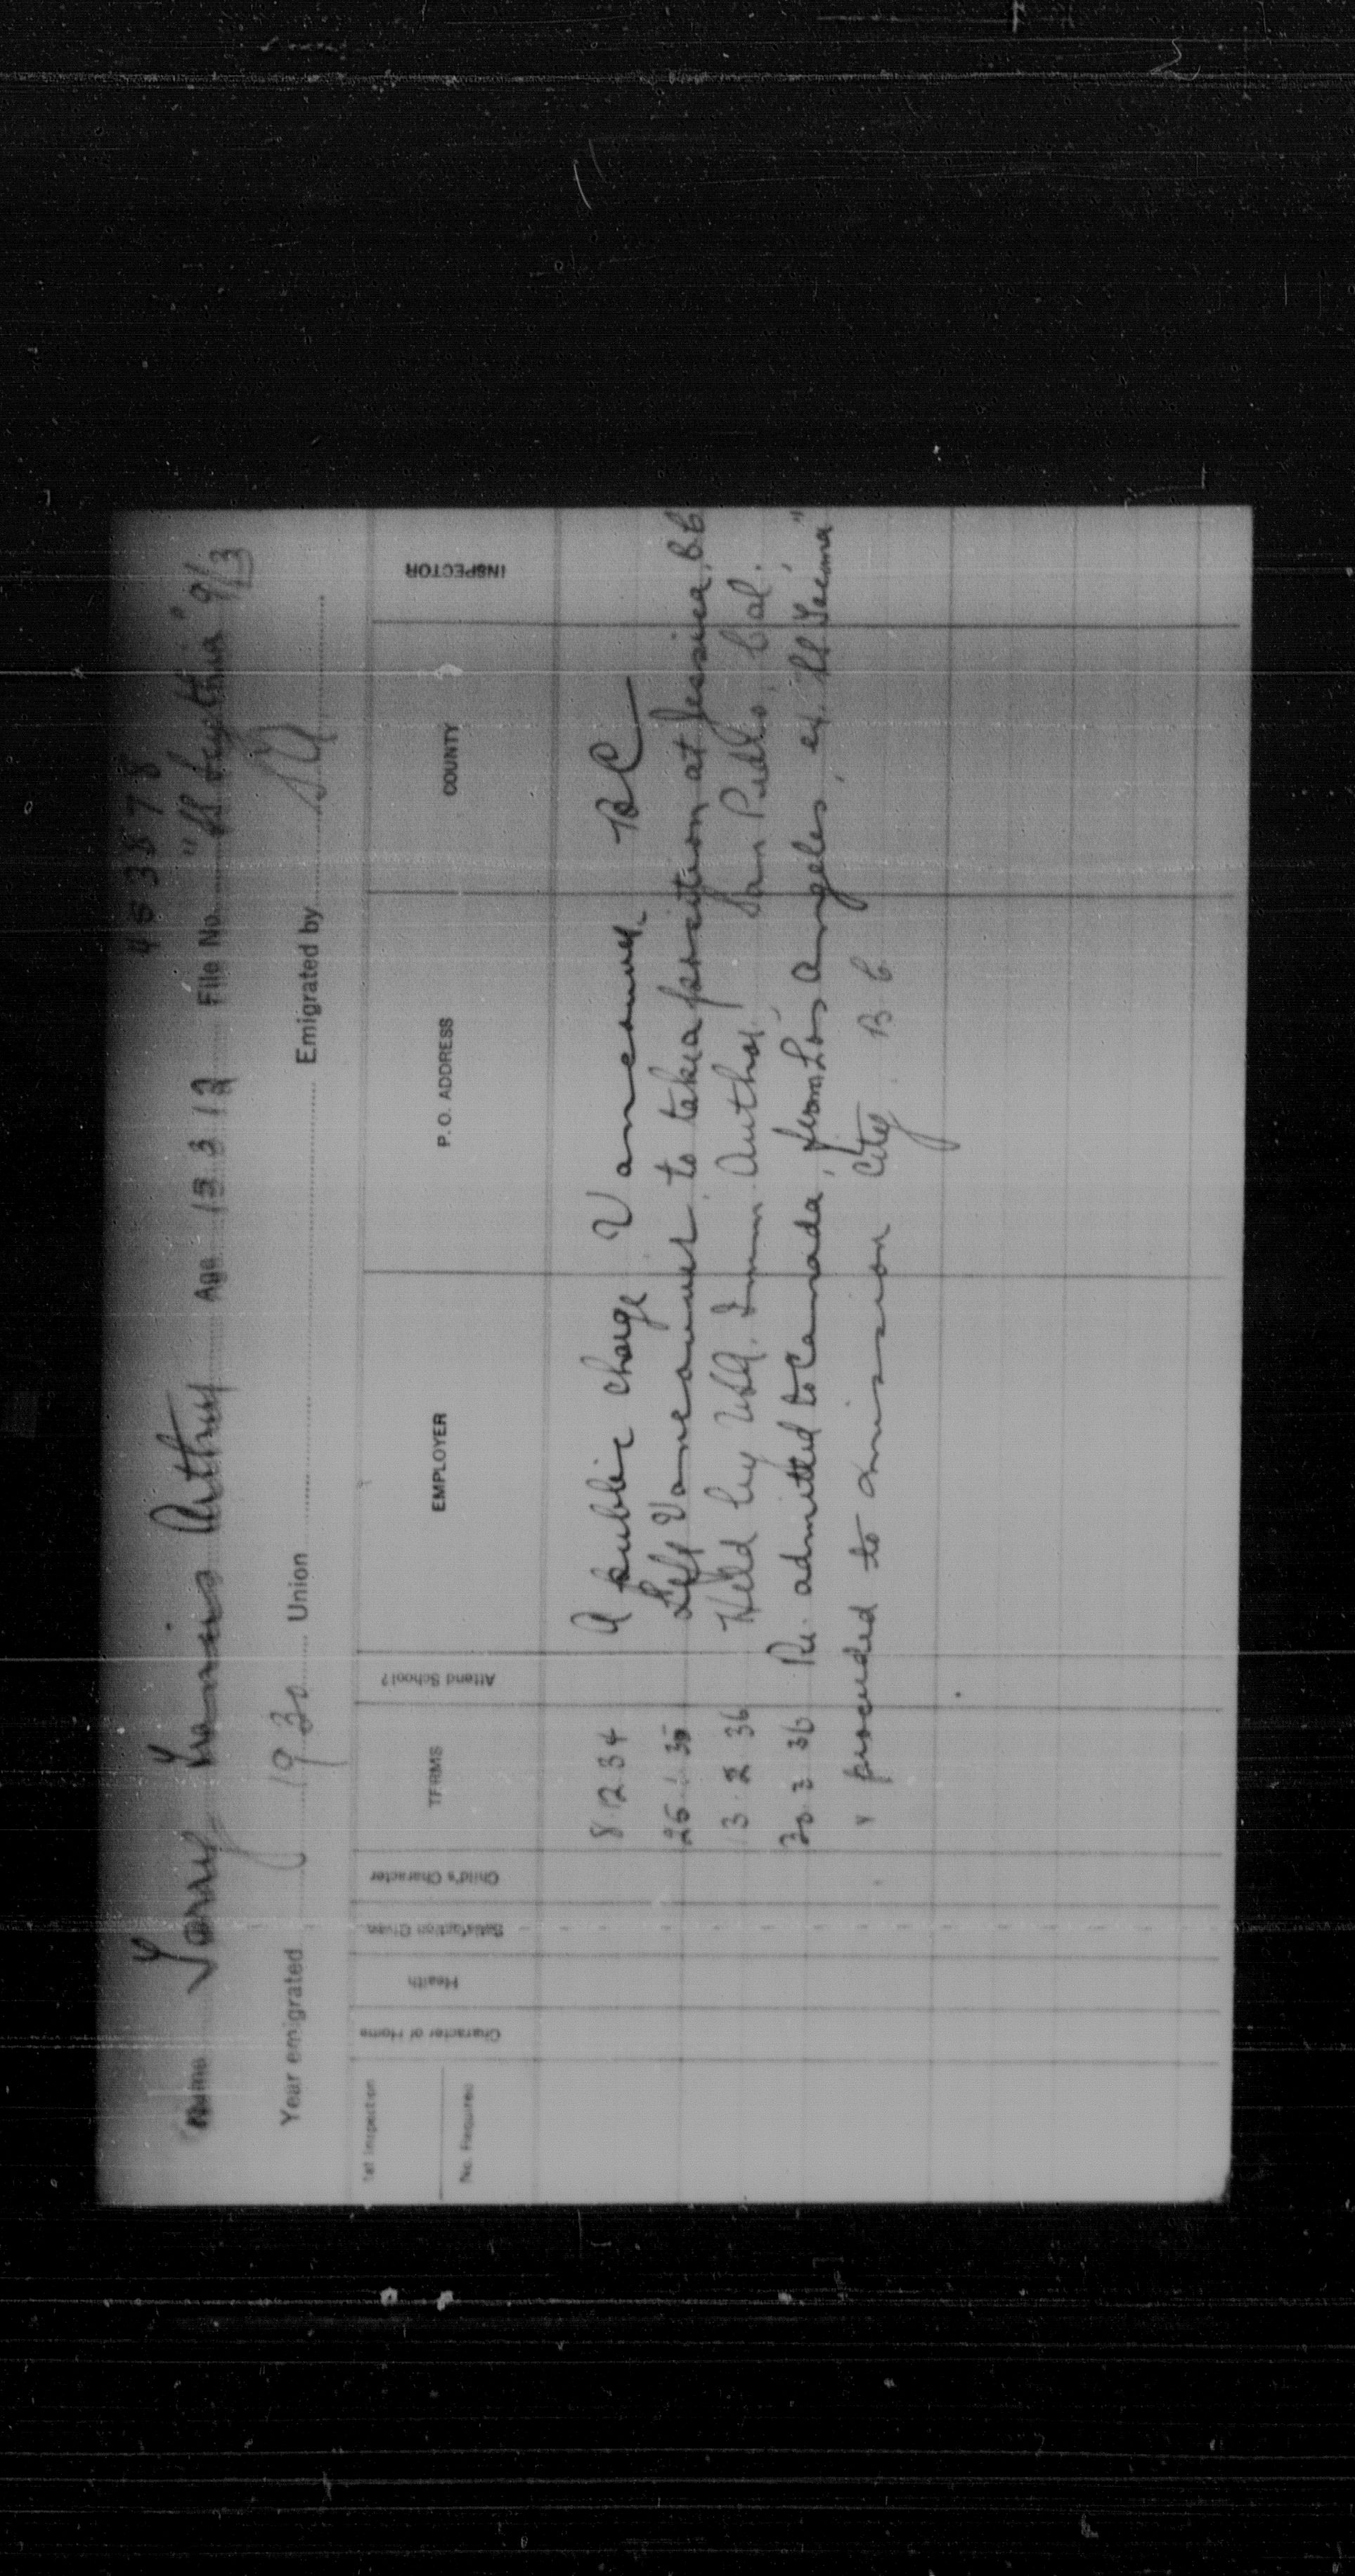 453878
Name Torry Francis Arthur Age 12 3 13 File No. "SS Scythia" 9/13
Year emigrated 1930 Union Emigrated by SA
1st Inspection No. Required Character of Home Health Satisfaction Given Child's Character TERMS Attend School? EMPLOYER P. O. ADDRESS COUNTY INSPECTOR
8 12 34 A public charge Vancouver BC
25 1 35 Left Vancouver to take a position at Jessica, B.C
13 2 36 Held by USA. Imm Author, San Pedro, Cal.,
30 3 36 Re. admitted to Canada, from Los Angeles, ex. "SS Tacoma"
& proceeded to City B.C